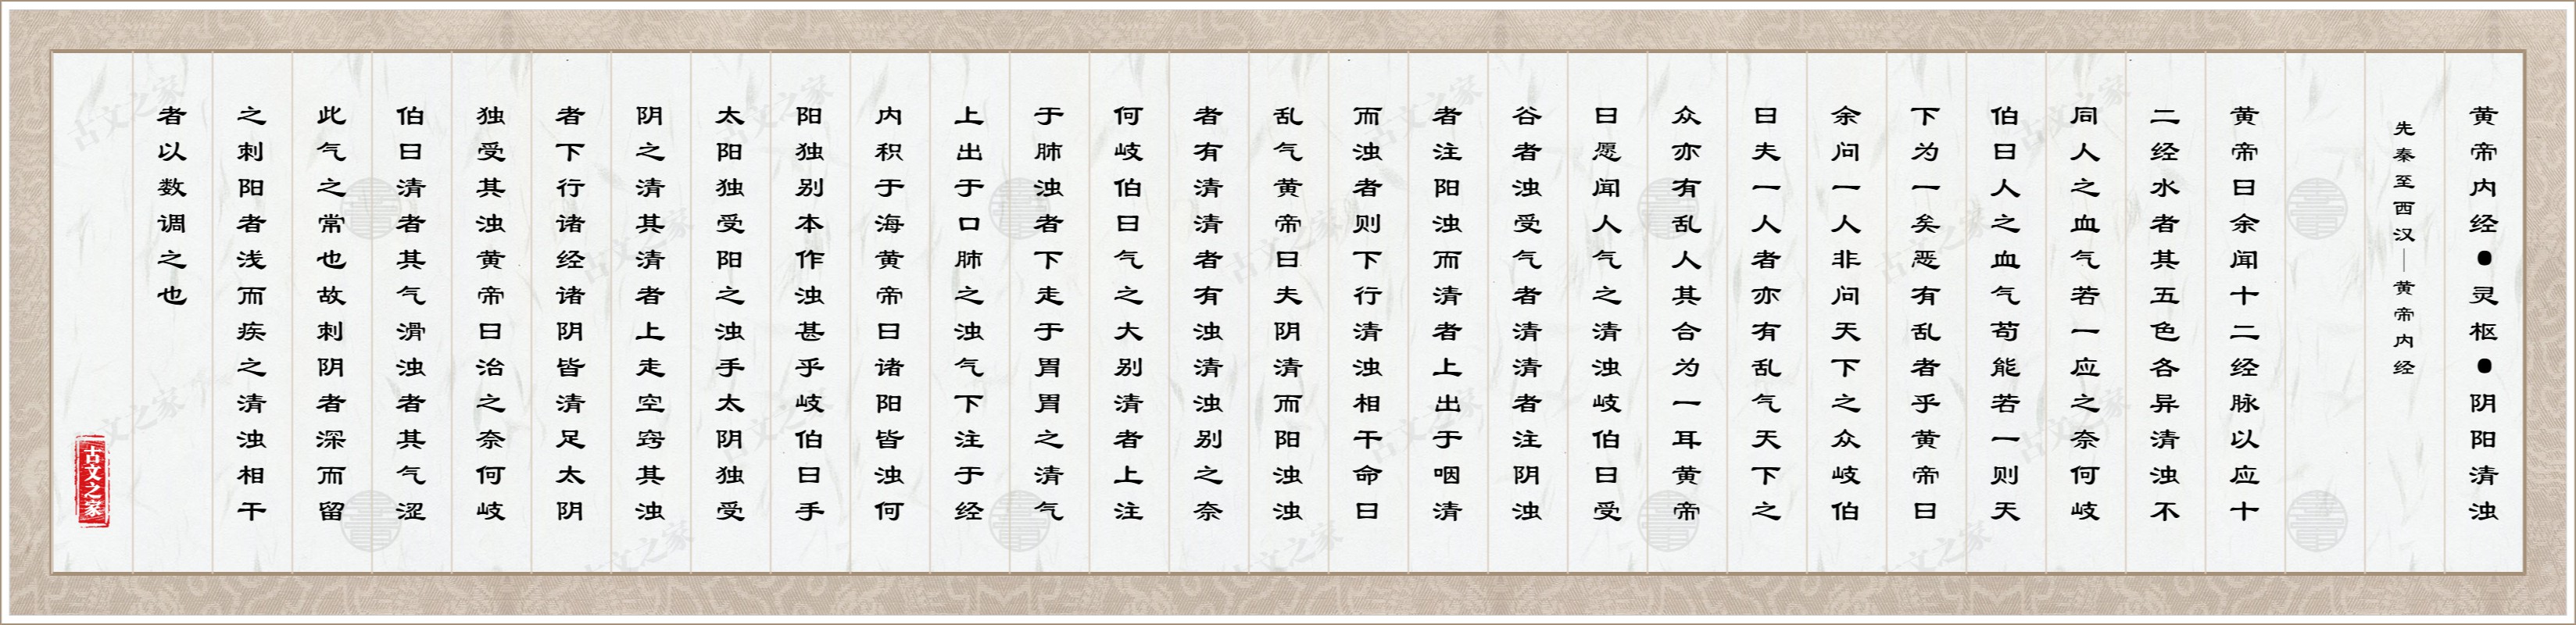 黄帝内经●灵枢●阴阳清浊
先秦至西汉—黄帝内经
黄帝曰余闻十二经脉以应十
二经水者其五色各异清浊不
同人之血气若一应之奈何岐
伯曰人之血气苟能若一则天
下为一矣恶有乱者乎黄帝曰
余问一人非问天下之众岐伯
曰夫一人者亦有乱气天下之
众亦有乱人其合为一耳黄帝
曰愿闻人气之清浊岐伯曰受
谷者浊受气者清清者注阴浊
者注阳浊而清者上出于咽清
而浊者则下行清浊相干命曰
乱气黄帝曰夫阴清而阳浊浊
者有清清者有浊清浊别之奈
何岐伯曰气之大别清者上注
于肺浊者下走于胃胃之清气
上出于口肺之浊气下注于经
内积于海黄帝曰诸阳皆浊何
阳独别本作浊甚乎岐伯曰手
太阳独受阳之浊手太阴独受
阴之清其清者上走空窍其浊
者下行诸经诸阴皆清足太阴
独受其浊黄帝曰治之奈何岐
伯曰清者其气滑浊者其气涩
此气之常也故刺阴者深而留
之刺阳者浅而疾之清浊相干
者以数调之也
古文之家